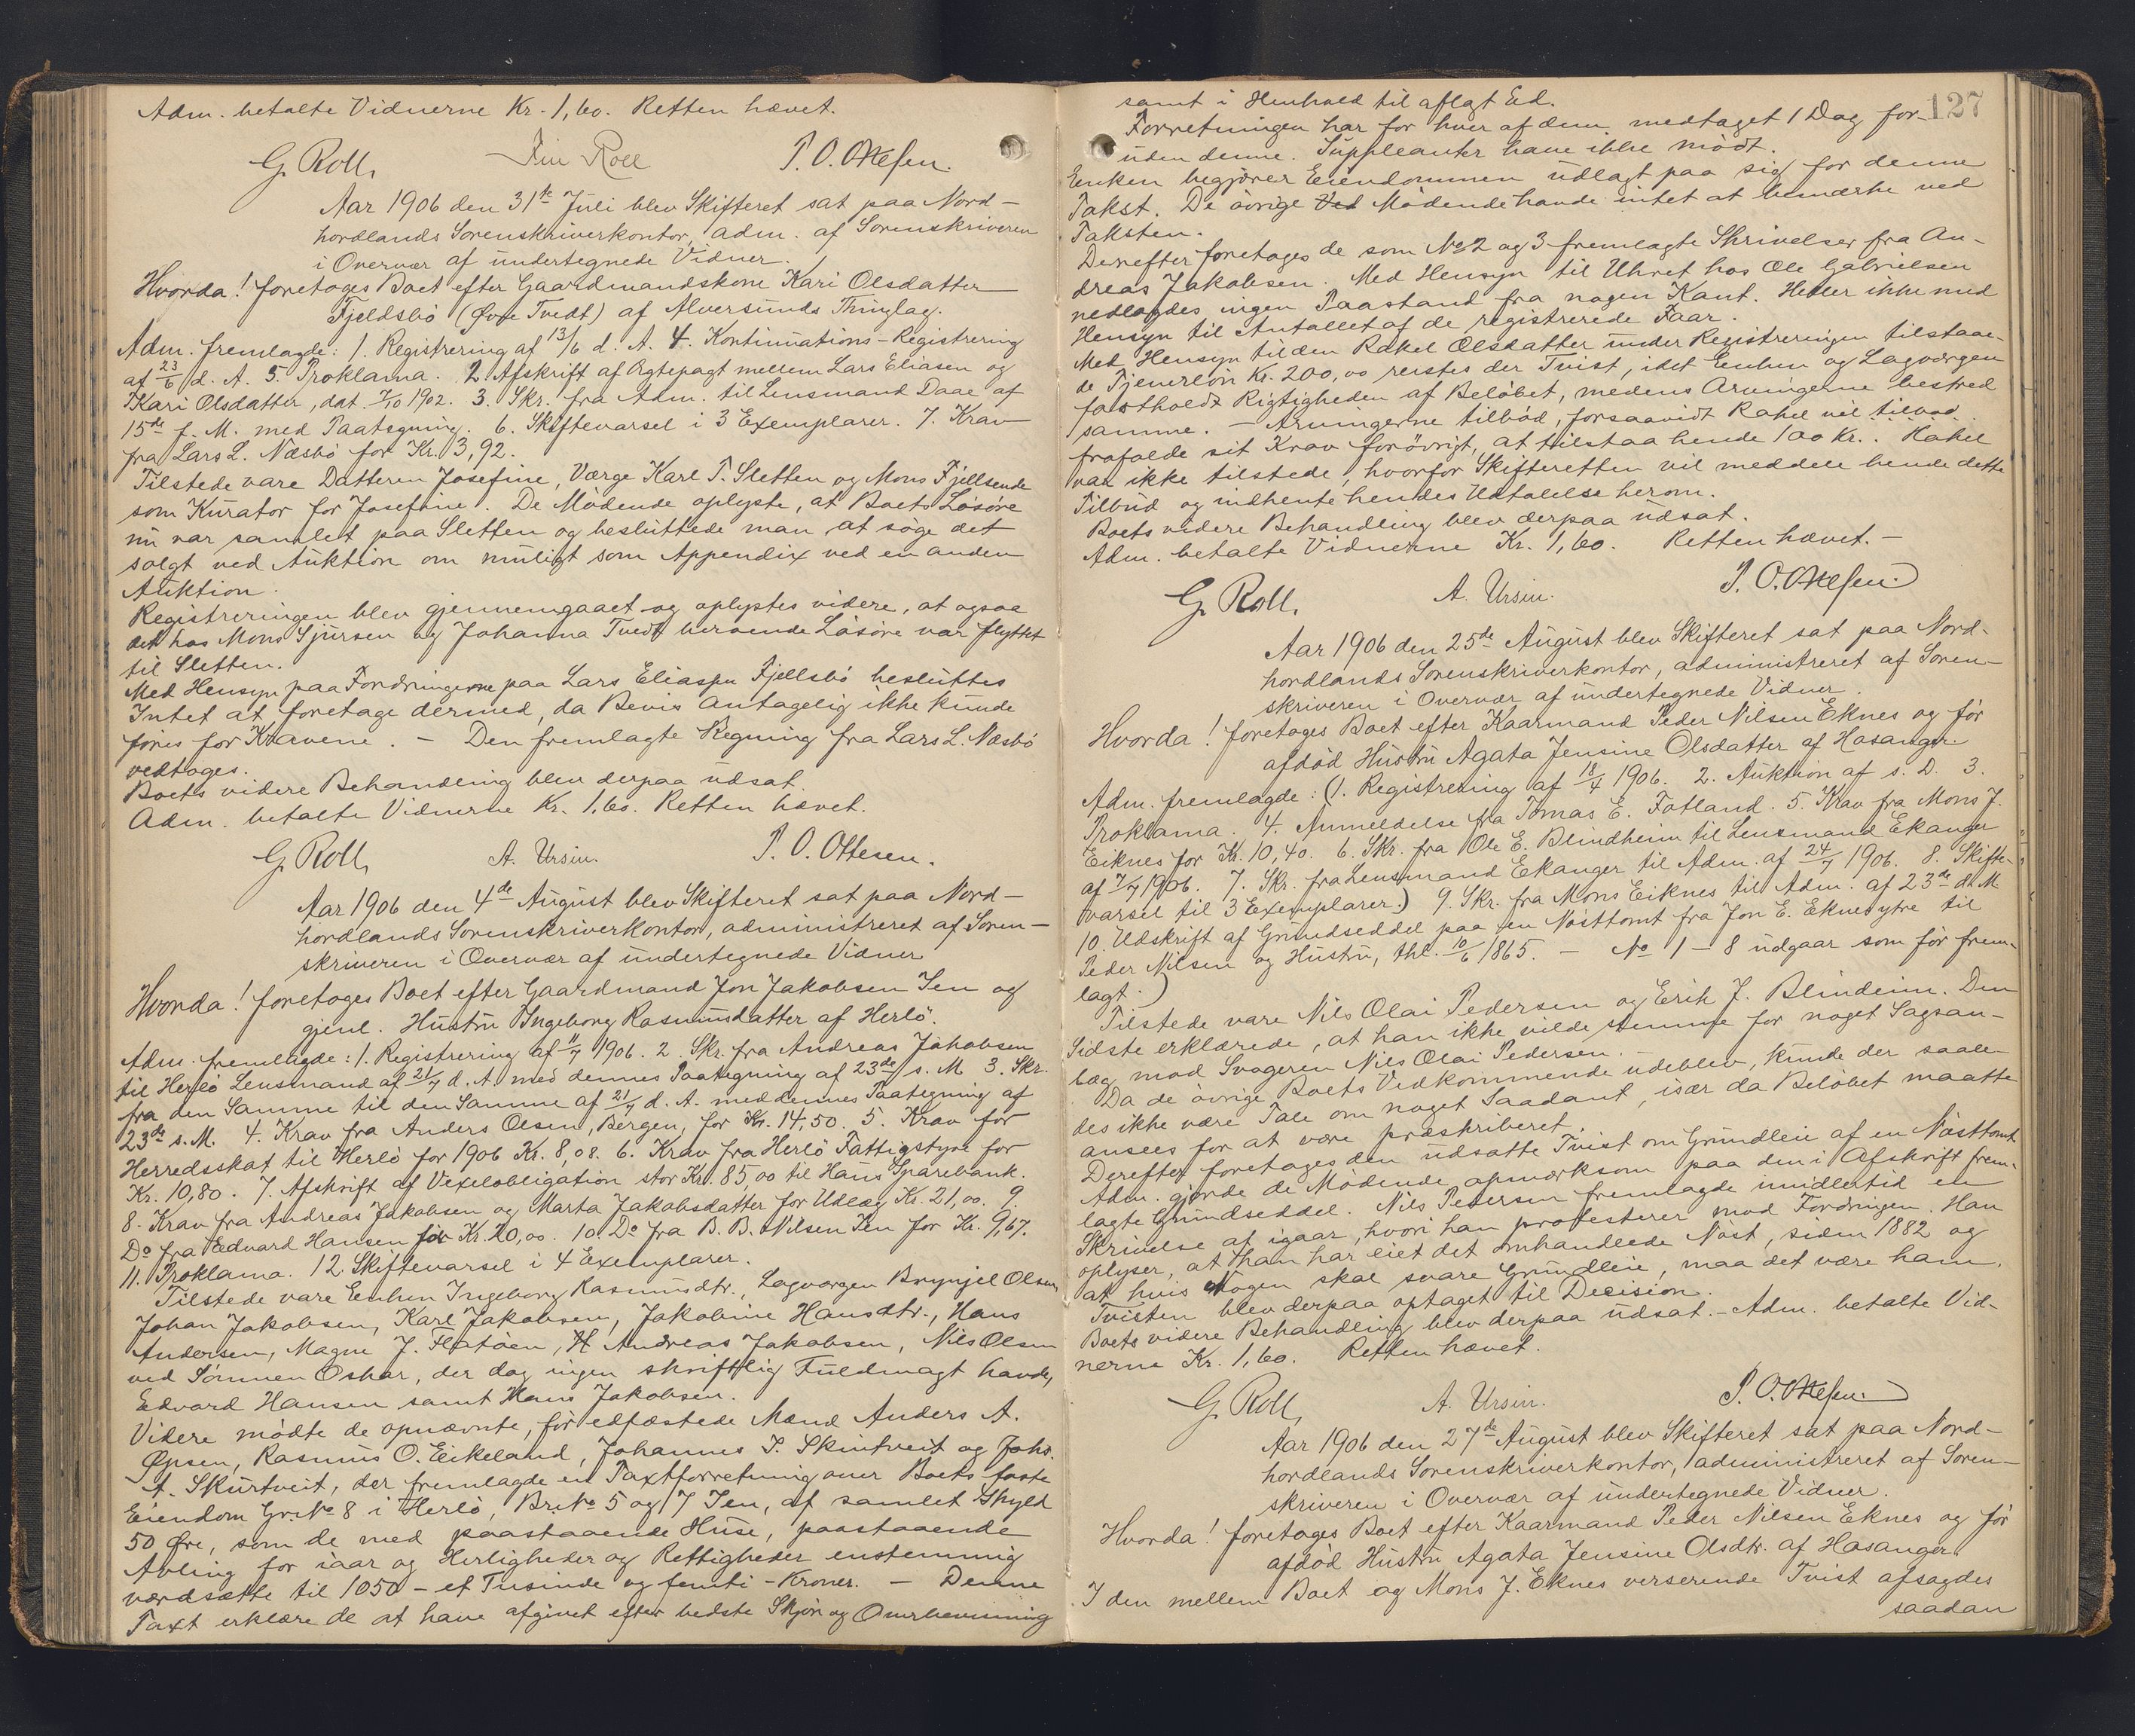 Adm. betalte Vidnerne Kr. 1,60. Retten hævet.
G. Roll, Finn Roll P. O. Ottesen.
Aar 1906 den 31te Juli blev Skifteret sat paa Nord-
hordlands Sorenskriverkontor, adm. af Sorenskriveren
i Overvær af undertegnede Vidner.
Hvorda! foretoges Boet efter Gaardmandskone Kari Olsdatter
Fjeldsbö (Øvre Tvedt) af Alversunds Thinglag.
Adm. fremlagde: 1. Registrering af 13/6 d. A. 4. Kontinuations-Registrering
af 23/6 d. A. 5. Proklama. 2. Afskrift af Ægtepagt mellem Lars Eliasen og
Kari Olsdatter, dat. 7/10 1902. 3. Skr. fra Adm. til Lensmand Daae af
15de f. M. med Paategning. 6. Skiftevarsel i 3 Exemplarer. 7. Krav
fra Lars L. Næsbö for Kr. 3,92.
Tilstede vare Datteren Josefine, Værge Karl P. Sletten og Mons Fjellsende
som Kurator for Josefine. De Mödende oplyste, at Boets Lösöre
nu var samlet paa Sletten og besluttede man at söge det
solgt ved Auktion om muligt som Appendix ved en anden
Auktion.
Registreringen blev gjennemgaaet og oplystes videre, at ogsaa
det hos Mons Sjursen og Johanna Tvedt beroende Lösöre var flyttet
til Sletten.
Med Hensyn paa Fordringerne paa Lars Eliassen Fjellsbö besluttes
Intet at foretage dermed, da Bevis antagelig ikke kunde
föres for Kravene. - Den fremlagte Regning fra Lars L. Næsbö
vedtoges.
Boets videre Behandling blev derpaa udsat.
Adm. betalte Vidnerne Kr. 1,60. Retten hævet.
G. Roll, A. Ursin. P. O. Ottesen.
Aar 1906 den 4de August blev Skifteret sat paa Nord-
hordlands Sorenskriverkontor, administreret af Soren-
skriveren i Overvær af undertegnede Vidner
Hvorda! foretoges Boet efter Gaardmand Jon Jakobsen Ien og
gjenl. Hustru Ingeborg Rasmusdatter af Herlö.
Adm. fremlagde: 1. Registrering af 11/7 1906. 2. Skr. fra Andreas Jakobsen
til Herlö Lensmand af 21/7 d. A. med dennes Paategning af 23de s. M. 3. Skr.
fra den Samme til den Samme af 21/7 d. A. med dennes Paategning af
23de s. M. 4. Krav fra Anders Olsen, Bergen, for Kr. 14,50. 5. Krav for
Herredsskat til Herlö for 1906 Kr. 8,08. 6. Krav fra Herlö Fattigstyre for
Kr. 10,80. 7. Afskrift af Vexelobligation stor Kr. 85,00 til Haus Sparebank.
8. Krav fra Andreas Jakobsen og Marta Jakobsdatter for Udlæg Kr. 21,00. 9.
Do fra Edvard Hansen for Kr. 20,00. 10. Do fra B. B. Nilsen Ien for Kr. 9,67.
11. Proklama. 12. Skiftevarsel i 4 Exemplarer.
Tilstede vare Enken Ingeborg Rasmusdtr., Lagværgen Brynjel Olsen,
Johan Jakobsen, Karl Jakobsen, Jakobine Hansdtr., Hans
Andersen, Magne J. Flatöen, Andreas Jakobsen, Nils Olsen
ved Sönnen Oskar, der dog ingen skriftlig Fuldmagt havde,
Edvard Hansen samt Hans Jakobsen.
Videre mödte de opnævnte, för edfæstede Mænd Anders A.
Øpsen, Rasmus O. Eikeland, Johannes P. Skurtveit og Johs.
A. Skurtveit, der fremlagde en Taxtforretning over Boets faste
Eiendom Gr. No 8 i Herlö, Br. No 5 og 7 Ien, af samlet Skyld
50 Øre, som de med paastaaende Huse, paastaaende
Avling for iaar og Herligheder og Rettigheder enstemmig
værdsætte til 1050 - et Tusinde og femti - Kroner. - Denne
Taxt erklære de at have afgivet efter bedste Skjön og Overbevisning
127
samt i Henhold til aflagt Ed.
Forretningen har for hver af dem medtaget 1 Dag for-
uden denne. Suppleanter have ikke mödt.
Enken begjærer Eiendommen udlagt paa sig for denne
Takst. De övrige Ved Mödende havde intet at bemærke ved
Taksten.
Derefter foretoges de som No 2 og 3 fremlagte Skrivelser fra An-
dreas Jakobsen. Med Hensyn til Uhret hos Ole Gabrielsen
nedlagdes ingen Paastand fra nogen Kant. Heller ikke med
Hensyn til Antallet af de registrerede Faar.
Med Hensyn til den Rakel Olsdatter under Registreringen tilstaae-
de Tjenerlön Kr. 200,00 reistes der Tvist, idet Enken og Lagværgen
fastholdt Rigtigheden af Belöbet, medens Arvingerne bestred
samme. - Arvingerne tilböd, forsaavidt Rakel vil
frafalde sit Krav forövrigt, at tilstaa hende 100 Kr. Rakel
var ikke tilstede, hvorfor Skifteretten vil meddele hende dette
Tilbud og indhente hendes Udtalelse herom.
Boets videre Behandling blev derpaa udsat.
Adm. betalte Vidnerne Kr. 1,60. Retten hævet. -
G. Roll, A. Ursin. P. O. Ottesen.
Aar 1906 den 25de August blev Skifteret sat paa Nord-
hordlands Sorenskriverkontor, administreret af Soren-
skriveren i Overvær af undertegnede Vidner.
Hvorda! foretoges Boet efter Kaarmand Peder Nilsen Eknes og för
afdöd Hustru Agata Jensine Olsdatter af Hosanger.
Adm. fremlagde: (1. Registrering af 18/4 1906. 2. Auktion af s. D. 3.
Proklama. 4. Anmeldelse fra Tomas E. Fotland. 5. Krav fra Mons J.
Eiknes for Kr. 10,40. 6. Skr. fra Ole E. Blindheim til Lensmand Ekanger
af 7/7 1906. 7. Skr. fra Lensmand Ekanger til Adm. af 24/7 1906. 8. Skifte-
varsel til 3 Exemplarer.) 9. Skr. fra Mons Eiknes til Adm. af 23de d. M.
10. Udskrift af Grundseddel paa en Nösttomt fra Jon E. Eknes ytre til
Peder Nilsen og Hustru, thl. 10/6 1865. - No 1 - 8 udgaar som för frem-
lagt.)
Tilstede vare Nils Olai Pedersen og Erik J. Blindeim. Den
Sidste erklærede, at han ikke vilde stemme for noget Sagsan-
læg mod Svogeren Nils Olai Pedersen. -
Da de övrige Boets Vedkommende udeblev, kunde der saale-
des ikke være Tale om noget Saadant, især da Belöbet maatte
ansees for at være præskriberet.
Derefter foretoges den udsatte Tvist om Grundleie af en Nösttomt.
Adm. gjorde de Mödende opmærksom paa den i Afskrift frem-
lagte Grundseddel. Nils Pedersen fremlagde imidlertid en
Skrivelse af igaar, hvori han protesterer mod Fordringen. Han
oplyser, at han har eiet det omhandlede Nöst, siden 1882 og
at hvis Nogen skal svare Grundleie, maa det være ham.
Tvisten blev derpaa optaget til Decision.
Boets videre Behandling blev derpaa udsat. - Adm. betalte Vid-
nerne Kr. 1,60. Retten hævet.
G. Roll, A. Ursin. P. O. Ottesen.
Aar 1906 den 27de August blev Skifteret sat paa Nord-
hordlands Sorenskriverkontor, administreret af Soren-
skriveren i Overvær af undertegnede Vidner.
Hvorda! foretoges Boet efter Kaarmand Peder Nilsen Eknes og för
afdöd Hustru Agata Jensine Olsdtr. af Hosanger.
I den mellem Boet og Mons J. Eknes verserende Tvist afsagdes
saadan